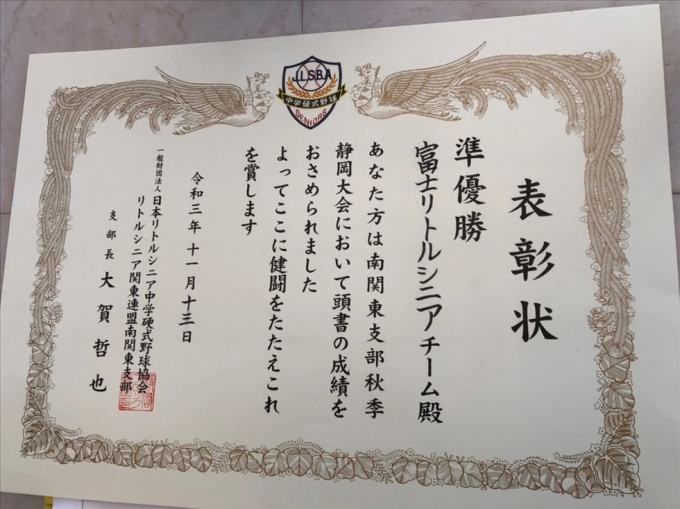 JLSBA
中学硬式野球
SENIORS
表彰状
準優勝
富士リトルシニアチーム殿
あなた方は南関東支部秋季
静岡大会において頭書の成績を
おさめられました
よってここに健闘をたたえこれ
を賞します
令和三年十一月十三日
一般財団法人日本リトルシニア中学硬式野球協会
リトルシニア関東連盟南関東支部
支部長 大賀哲也